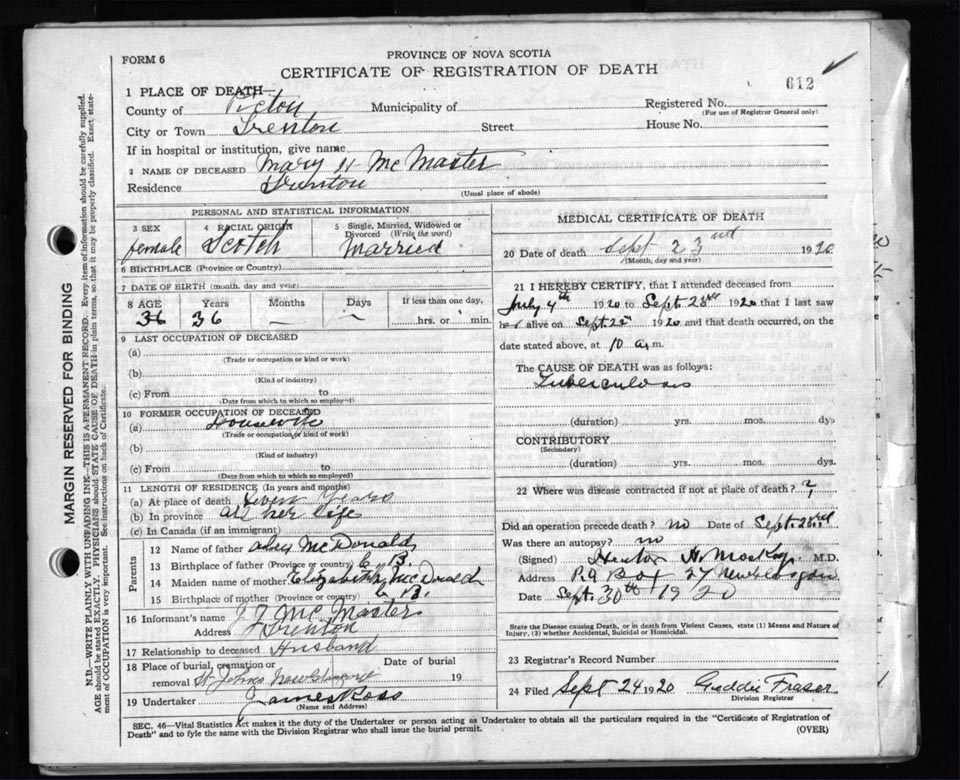 FORM 6
PROVINCE OF NOVA SCOTIA
CERTIFICATE OF REGISTRATION OF DEATH
612
1 PLACE OF DEATH—
County of Pictou Municipality of Registered No.
(For use of Registrar General only)
City or Town Trenton Street House No.
If in hospital or institution, give name
2 NAME OF DECEASED Mary H McMaster
Residence Trenton
(Usual place of abode)
PERSONAL AND STATISTICAL INFORMATION
3 SEX female
4 RACIAL ORIGIN Scotch
5 Single, Married, Widowed or Divorced (Write the word) Married
6 BIRTHPLACE (Province or Country)
7 DATE OF BIRTH (month, day and year)
8 AGE Years Months Days If less than one day,
36 36 — — hrs. or min.
9 LAST OCCUPATION OF DECEASED
(a)
(Trade or occupation or kind or work)
(b)
(Kind of industry)
(c) From to
(Date from which to which so employed)
10 FORMER OCCUPATION OF DECEASED
(a) Housewife
(Trade or occupation or kind of work)
(b)
(Kind of industry)
(c) From to
(Date from which to which so employed)
11 LENGTH OF RESIDENCE (In years and months)
(a) At place of death Seven Years
(b) In province all her life
(c) In Canada (if an immigrant)
Parents
12 Name of father McDonald
13 Birthplace of father (Province or country) C. B.
14 Maiden name of mother Elizabeth McDonald
15 Birthplace of mother (Province or country) C. B.
16 Informant's name J. J. McMaster
Address Trenton
17 Relationship to deceased Husband
18 Place of burial, cremation or removal St Johns New Glasgow Date of burial 19
19 Undertaker James Ross
(Name and Address)
MEDICAL CERTIFICATE OF DEATH
20 Date of death Sept 23rd 1920
(Month, day and year)
21 I HEREBY CERTIFY, that I attended deceased from
July 4th 1920 to Sept. 23rd 1920 that I last saw
her alive on Sept. 1920 and that death occurred, on the
date stated above, at 10 a.m.
The CAUSE OF DEATH was as follows:
Tuberculosis
(duration) yrs. mos. dys
CONTRIBUTORY
(Secondary)
(duration) yrs. mos. dys.
22 Where was disease contracted if not at place of death? ?
Did an operation precede death? no Date of Sept. 23rd
Was there an autopsy? no
(Signed) H. MacKay M.D.
Address P.O. Box 27 New Glasgow
Date Sept. 30th 1920
State the Disease causing Death, or in death from Violent Causes, state (1) Means and Nature of Injury, (2) whether Accidental, Suicidal or Homicidal.
23 Registrar's Record Number
24 Filed Sept 24 1920 Geddie Fraser
Division Registrar
SEC. 46—Vital Statistics Act makes it the duty of the Undertaker or person acting as Undertaker to obtain all the particulars required in the "Certificate of Registration of
Death" and to fyle the same with the Division Registrar who shall issue the burial permit.
(OVER)
MARGIN RESERVED FOR BINDING
N.B.—WRITE PLAINLY WITH UNFADING INK—THIS IS A PERMANENT RECORD. Every item of information should be carefully supplied.
AGE should be stated EXACTLY. PHYSICIANS should STATE CAUSE OF DEATH in plain terms, so that it may be properly classified. Exact statement
of OCCUPATION is very important. See instructions on back of Certificate.